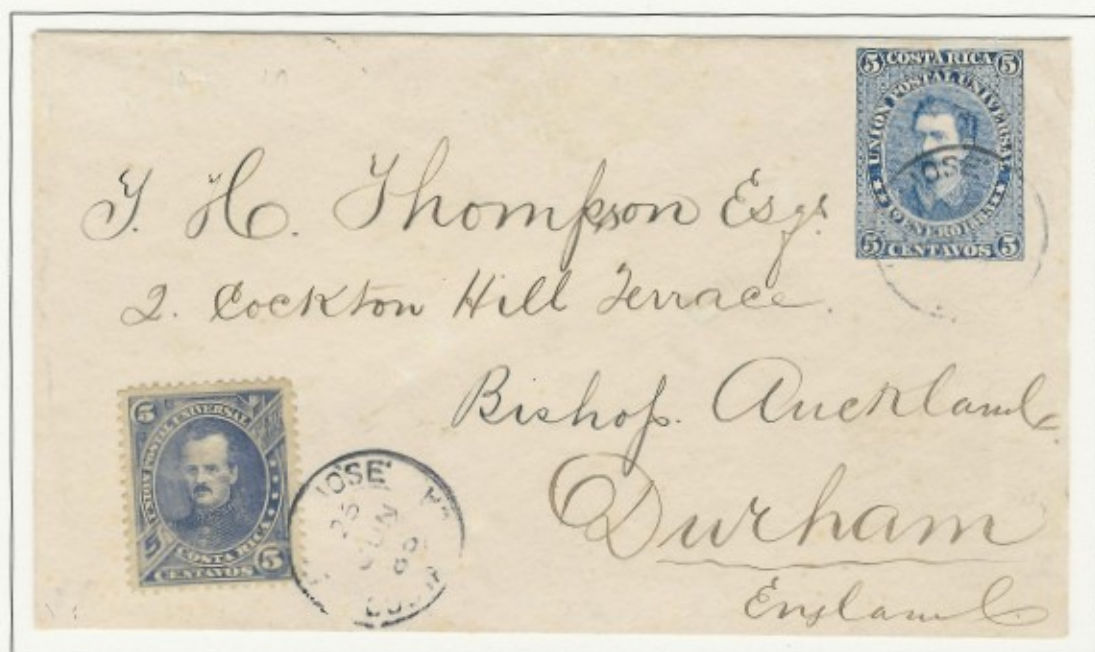 5 COSTA RICA 5
UNION POSTAL UNIVERSAL
5 CENTAVOS 5
JOSE
Y. H. Thompson Esqr
2. Cockton Hill Terrace.
Bishop. Auckland
Durham
England
5
UNION POSTAL UNIVERSAL
COSTA RICA
5 CENTAVOS 5
JOSE
25
JUN